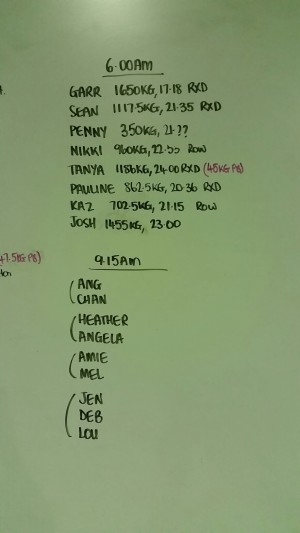 6:00AM
GARR 1650KG, 17.18 RXD
SEAN 1117.5KG, 21.35 RXD
PENNY 350KG, 21.??
NIKKI 960KG, 22.55 ROW
TANYA 1186KG, 24.00 RXD (45KG PB)
PAULINE 862.5KG, 20.36 RXD
KAZ 702.5KG, 21.15 ROW
JOSH 1455KG, 23.00
47.5KG PB)
9.15AM
ANG
CHAN
HEATHER
ANGELA
AMIE
MEL
JEN
DEB
LOU